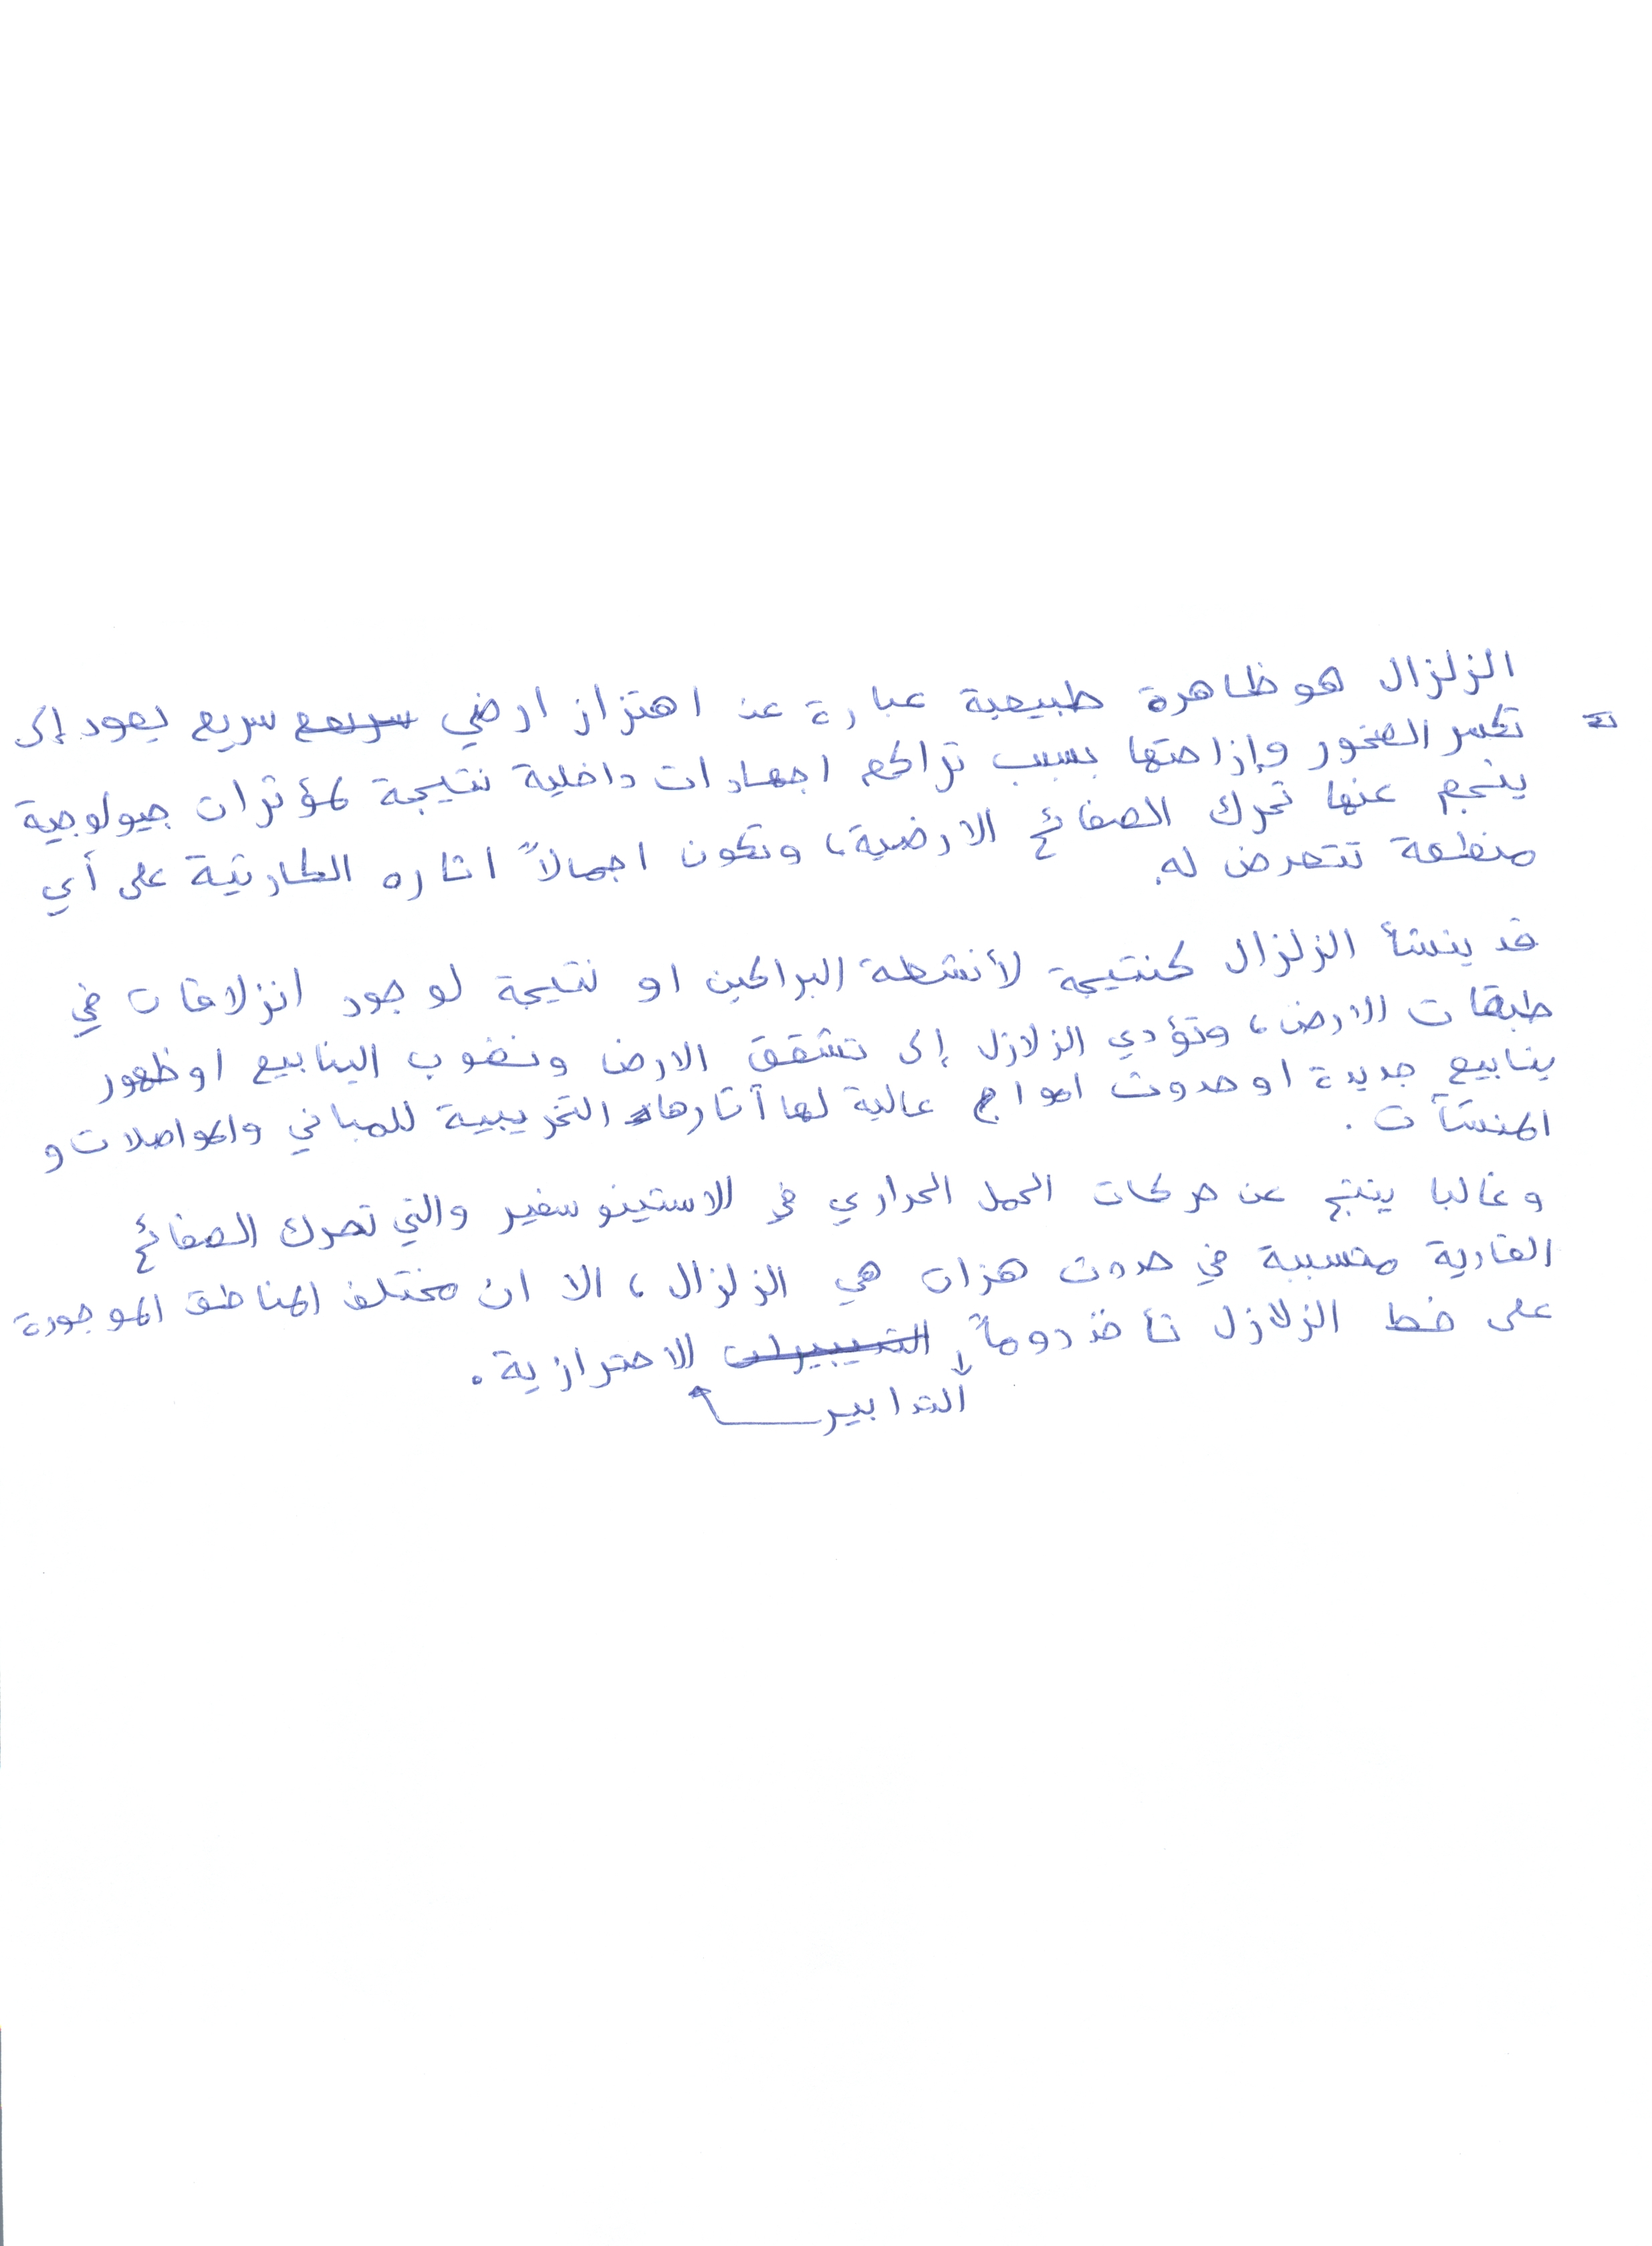 الزلزال هو ظاهرة طبيعية عبارة عن اهتزاز ارضي سريع سريع يعود إلى
تكسر الصخور وإزاحتها بسبب تراكم اجهادات داخلية نتيجة لمؤثرات جيولوجية
ينجم عنها تحرك الصفائح الارضية، وتكون اجمالاً اثاره الكارثية على أي
منطقة تتعرض له.
قد ينشأ الزلزال كنتيجة لأنشطة البراكين او نتيجة لوجود انزلاقات في
طبقات الارض، وتؤدي الزلازل إلى تشقق الارض ونضوب الينابيع او ظهور
ينابيع جديدة او حدوث امواج عالية لها آثارها التخريبية للمباني والمواصلات و
المنشآت.
وغالبا ينتج عن حركات الحمل الحراري في الاستينوسفير والتي تحرك الصفائح
القارية متسببة في حدوث هزات هي الزلزال، الا ان مختلف المناطق الموجودة
على خط الزلازل تأخذ دوماً الاحترازية.
التدابير